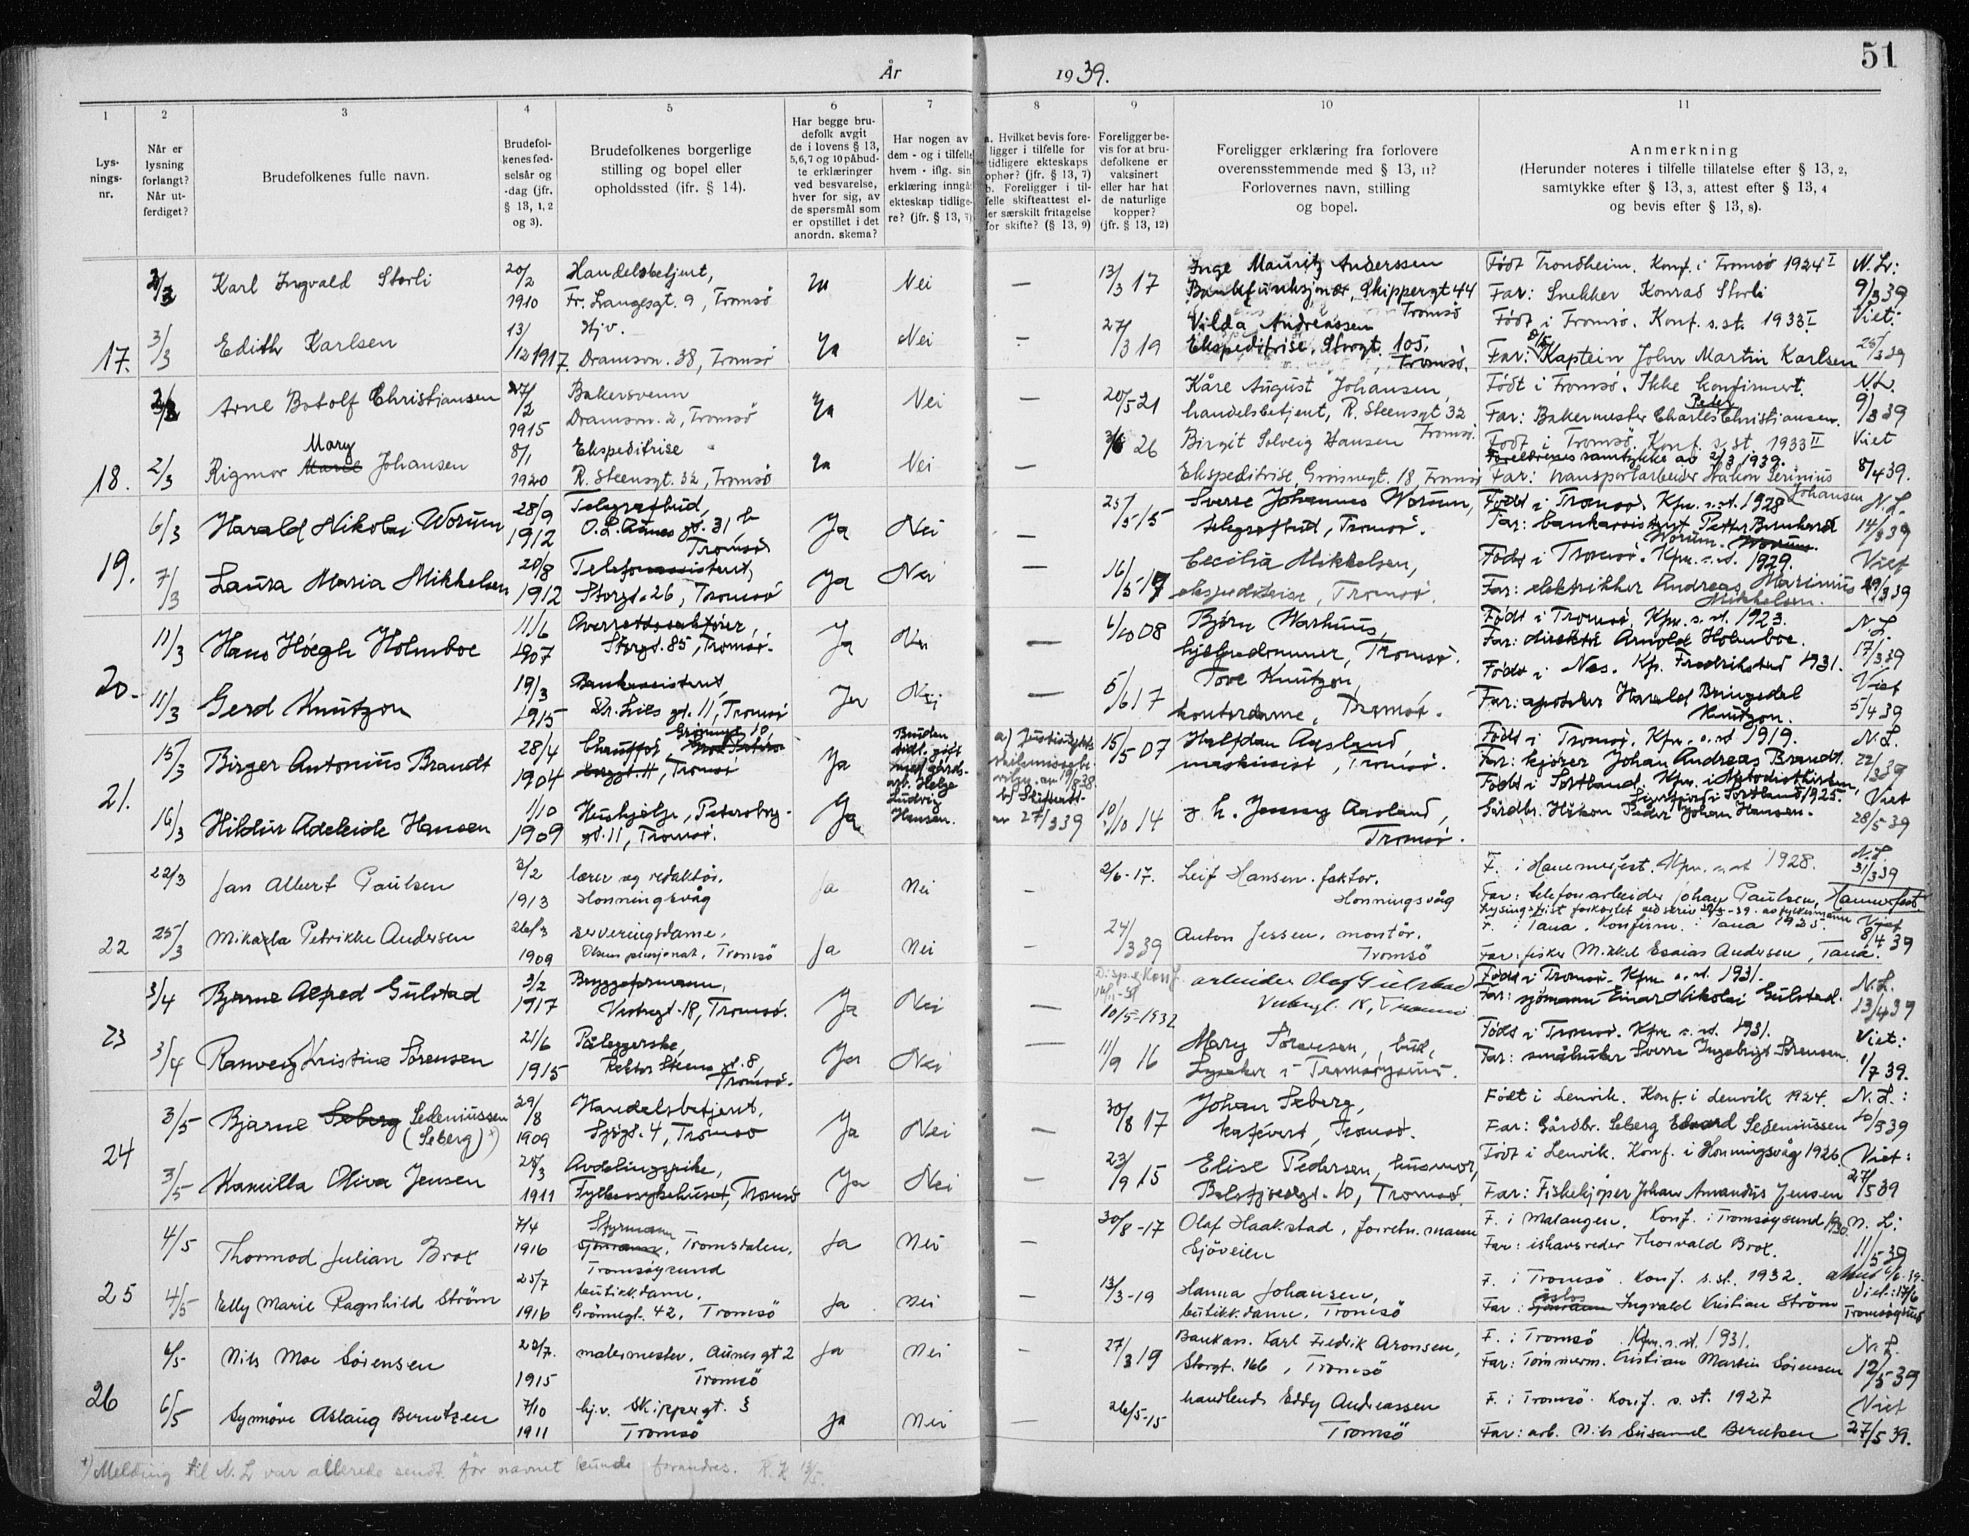 År 1939. 51
1 2 3 4 5 6 7 8 9 10 11
Lysningsnr.
Når er lysning forlangt? Når utferdiget?
Brudefolkenes fulle navn.
Brudefolkenes fødselsår og -dag (jfr. § 13, 1, 2 og 3).
Brudefolkenes borgerlige stilling og bopel eller opholdssted (ifr. § 14).
Har begge brudefolk avgit de i lovens § 13, 5,6,7 og 10 påbudte erklæringer ved besvarelse, hver for sig, av de spørsmål som er opstillet i det anordn. skema?
Har nogen av dem - og i tilfelle hvem - iflg. sin erklæring inngå ekteskap tidligere? (jfr. § 13, 7)
a. Hvilket bevis foreligger i tilfelle for tidligere ekteskaps ophør? (jfr. § 13, 7) b. Foreligger i tilfelle skifteattest eller særskilt fritagelse for skifte? (§ 13, 9)
Foreligger bevis for at brudefolkene er vaksinert eller har hat de naturlige kopper? (jfr. § 13, 12)
Foreligger erklæring fra forlovere overensstemmende med § 13, 11? Forlovernes navn, stilling og bopel.
Anmerkning (Herunder noteres i tilfelle tillatelse efter § 13, 2, samtykke efter § 13, 3, attest efter § 13, 4 og bevis efter § 13, 8).
Karl Ingvald Storli 20/2 1910 Handelsbetjent, Fr. Langesgt. 9, Tromsø Ja Nei — 13/3 17 Inge Mauritz Anderssen Bankfunksjonær, Skippergt 44 Tromsø Født Trondheim. Konf. i Tromsø 1924 I Far: Snekker Konrad Storli N.L: 9/3 39
17. 3/3 Edith Karlsen 13/12 1917 Hjv. Dramsvn. 38, Tromsø Ja Nei - 27/3 19 Vilda Andreassen Ekspeditrise, Storgt. 105, Tromsø. Født i Tromsø. Konf. s.st. 1933 I Far: Kaptein John Martin Karlsen Viet: 25/3 39
Arne Botolf Christiansen 27/2 1915 Bakersvenn Dramsvn. 2, Tromsø Ja Nei — 20/5 21 Kåre August Johansen, handelsbetjent, R. Steensgt 32 Tromsø. Født i Tromsø. Ikke konfirmert. Far: Bakermester Charles Peder Christiansen. N.L. 9/3 39
18. 2/3 Rigmor Marie Mary Johansen 8/1 1920 Ekspeditrise R. Steensgt. 32, Tromsø Ja Nei — 26 Birgit Solveig Hansen Ekspeditrise, Grønnegt. 18, Tromsø Født i Tromsø. Konf. s. st. 1933 II Foreldrenes samtykke av 2/3 1939. Far: transportarbeider Håkon Serinius Johansen Viet 8/4 39.
6/3 Harald Nikolai Worum 28/9 1912 Telegrafbud, O. L. Aunes gt. 31 b Tromsø Ja Nei — 25/5 15 Sverre Johannes Worum, telegrafbud, Tromsø. Født i Tromsø. Kfm. s. st. 1928 Far: bankassistent Petter Bernhard Worum. N.L. 14/3 39
19. 7/3 Laura Maria Mikkelsen 20/8 1912 Telefonassistent, Storgt. 26, Tromsø Ja Nei — 16/5 19 Cecilia Mikkelsen, ekspeditrise, Tromsø. Født i Tromsø. Kfm. s. st. 1929. Far: elektrikker Andreas Marinius Mikkelsen. Viet 29/3 39
11/3 Hans Höegh Holmboe 11/6 1907 Overrettssakfører, Storgt. 85, Tromsø. Ja Nei — 6/10 08 Bjørn Marhuus, hjelpedommer, Tromsø. Født i Tromsø. Kfm. s. st. 1923. Far: direktør Arnold Holmboe. N.L. 17/3 39
20. 11/3 Gerd Knutzon 19/3 1915 Bankassistent, Dr. Lies gt. 11, Tromsø Ja Nei — 5/6 17 Tove Knutzon kontordame, Tromsø. Født i Nes. Kf. Fredrikstad 1931. Far: apoteker Harald Bringedal Knutzon. Viet 5/4 39
15/3 Birger Antonius Brandt 28/4 1904 Chauffør, Grønnegt. 10, Tromsø Ja Bruden tidl. gift med gårdsarb. Helge Ludvig Hansen. 15/5 07 Halfdan Aasland, maskinist, Tromsø. Født i Tromsø. Kfm. s. st. 1919. Far: kjører Johan Andreas Brandt. N.L. 22/3 39
21. 16/3 Hildur Adeleide Hansen 1/10 1909 Hushjelp, Petersborggt. 11, Tromsø. Ja b) Skifteatt. av 27/3 39 10/10 14 Jenny Aasland, Tromsø. Født i Sortland. Kfm. i Metodistkirken, Sortland 1925. Gårdbr. Håkon Peder Johan Hansen. Viet 28/5 39
22/3 Jan Albert Paulsen 2/2 1913 lærer og redaktør. Honningsvåg Ja Nei — 2/6-17. Leif Hansen. faktor. Honningsvåg F. i Hammerfest. Kfm. s. st 1928. Far: telefonarbeider Johan Paulsen, Hammerfest N.L. 31/3 39
22 25/3 Mikaela Petrikke Andersen 26/3 1909 serveringsdame. Olsens pensjonat, Tromsø Ja Nei — 24/3 39 Anton Jessen. montör. Tromsö F. i Tana. Konfirm. i Tana 1925. Far: fisker Mikkel Esaias Andersen, Tana. Viet 8/4 39
3/4 Bjarne Alfred Gulstad 3/2 1917 Bryggeformann, Vestregt. 18, Tromsø. Ja Nei — 10/5-1932 arbeider Olaf Gulstad Født i Tromsø. Kfm s. st. 1931. Far: sjömann Einar Nikolai Gulstad. N.L. 13/4 39
23 3/4 Ranveig Kristine Sörensen 21/6 1915 Påleggerske, Rektor Steens gt. 8, Tromsø. Ja Nei — 11/9 16 Mary Sörensen, bud, Født i Tromsø. Kfm s. st. 1931. Far: småbruker Sverre Ingebrigt Sørensen. Viet: 1/7 39.
3/5 Bjarne Seberg Sedeniussen (Seberg) x) 29/8 1909 Handelsbetjent, Sjögt. 4, Tromsø Ja Nei — 30/8 17 Johan Seberg, kafévert, Tromsø. Født i Lenvik. Konf. i Lenvik 1924. Far: Gårdbr. Seberg Edvard Sedeniussen N.L.: 10/5 39
24 3/5 Kamilla Oliva Jensen 25/3 1911 Avdelingspike, Fylkessykehuset, Tromsø Ja Nei — 23/9 15 Elise Pedersen, husmor, Balsfjordgt. 10, Tromsø. Født i Lenvik. Konf. i Honningsvåg 1926 Far: Fiskekjøper Johan Amandus Jensen Viet: 27/5 39
4/5 Thormod Julian Brox 7/4 1916 Styrmann Sjömann, Tromsdalen, Tromsöysund Ja Nei — 30/8-17 Olaf Haakstad, forretn. mann Sjöveien F. i Malangen. Konf. i Tromsöysund 1930. Far: ishavsreder Thorvald Brox. N. L: 11/5 39
25 4/5 Elly Marie Ragnhild Ström 25/7 1916 butikkdame, Grönnegt. 42, Tromsö Ja Nei — 13/3-19 Hanna Johansen, butikkdame, Tromsö F. i Tromsö. Konf. s. st. 1932. Far: Sjömann Ingvald Kristian Ström Viet: 17/6 Tromsöysund
6/5 Nils Moe Sörensen 22/7. 1915 malermester. Aunes gt 2 Tromsö Ja Nei — 27/3 19 Bankass. Karl Fredrik Aronsen, Storgt. 166, Tromsö F. i Tromsö. Kfm. s. st. 1931. Far: Tömmerm. Kristian Martin Sörensen N.L. 12/5 39
26 6/5 Synnöve Aslaug Berntzen 7/10 1911 hj.v. Skippergt. 3 Tromsö Ja Nei — 26/5-15 handlende Eddy Andreassen Tromsö F. i Tromsö. Konf. s. st. 1927 Far: arb. Nils Berntsen Viet 27/5 39.
x) Melding til N. L var allerede sendt før navnet kunde forandres. R. K 13/5.